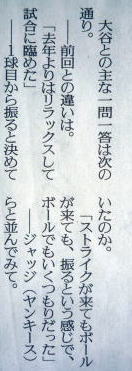 大谷との主な一問一答は次の
通り。
――前回との違いは。
「去年よりはリラックスして
試合に臨めた」
――1球目から振ると決めて
いたのか。
「ストライクが来てもボール
が来ても、振るという感じで、
ボールでもいくつもりだった」
――ジャッジ（ヤンキース）
らと並んでみて。